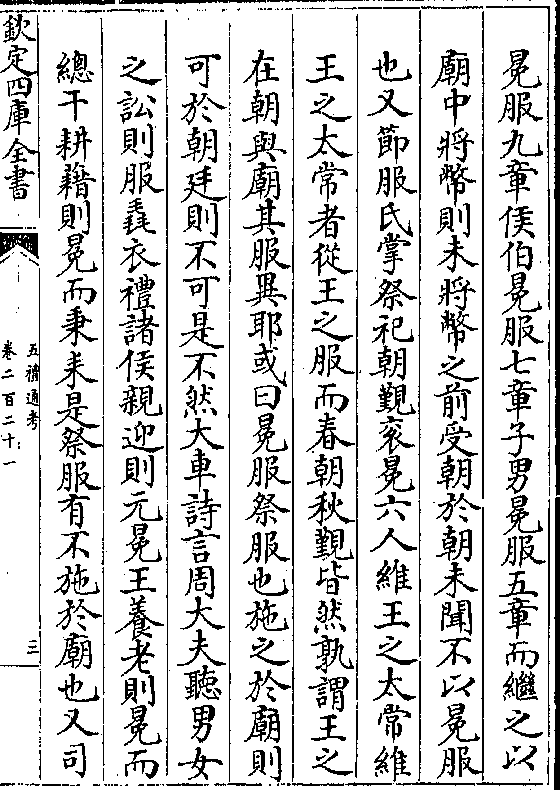 冕服九章侯伯冕服七章子男冕服五章而繼之以
廟中將幣則未將幣之前受朝於朝未聞不以冕服
也又節服氏掌祭祀朝覲衮冕六人維王之太常維
王之太常者從王之服而春朝秋覲皆然孰謂王之
在朝與廟其服異耶或曰冕服祭服也施之於廟則
可於朝廷則不可是不然大車詩言周大夫聽男女
之訟則服毳衣禮諸侯親迎則元冕王養老則冕而
總干耕藉則冕而秉耒是祭服有不施於廟也又司
欽定四庫全書
五禮通考
卷二百二十一
三